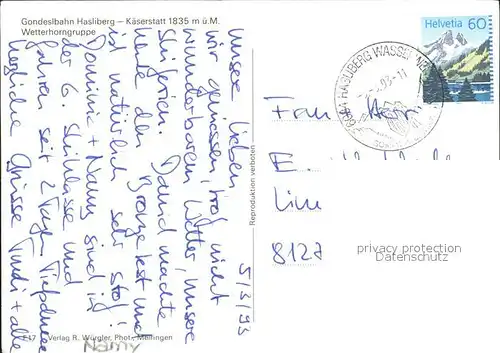 Gondeslbahn Hasliberg – Käserstatt 1835 m ü.M.
Wetterhorngruppe
Helvetia 60
HASLIBERG WASSERWENDI
5/3/93
Unsere Lieben
wir geniessen, trotz nicht
wunderbarem Wetter, unsere
Skiferien. David machte
heute den Bronze test und
ist natürlich sehr stolz!
Dominic + Namy sind in
der 6. Skiklasse und
fahren seit 2 Tagen Tiefschnee
Herzliche Grüsse + alle
Namy
Frau Herr
E.
8127
Reproduktion verboten
Verlag R. Würgler, Phot., Meiringen
privacy protection
Datenschutz